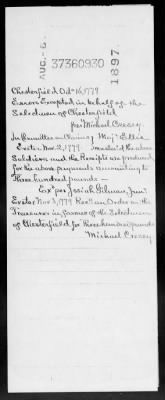 AUG.-6.
37360930
1897.
Chesterfield Oct 16, 1779
Errors Excepted in behalf of the
Selectmen of Chesterfield
per Michael Cressy.
In Committee on Claims, Maj Ellis
Exeter Nov. 2, 1779 the above
Soldiers and the Receipts as produced
for the above payments amounting to
Three hundred pounds —
Exd per Josiah Gilman, Junr
Exeter Nov 3, 1779 Recd an Order on the
Treasurer in favour of the Selectmen
of Chesterfield for three hundred pounds
Michael Cressy